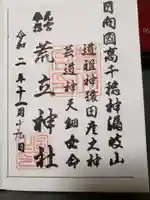 日向国高千穂神漏岐山
道祖神猿田彦大神
芸道神天鈿女命
荒立神社
令和二年十一月十九日